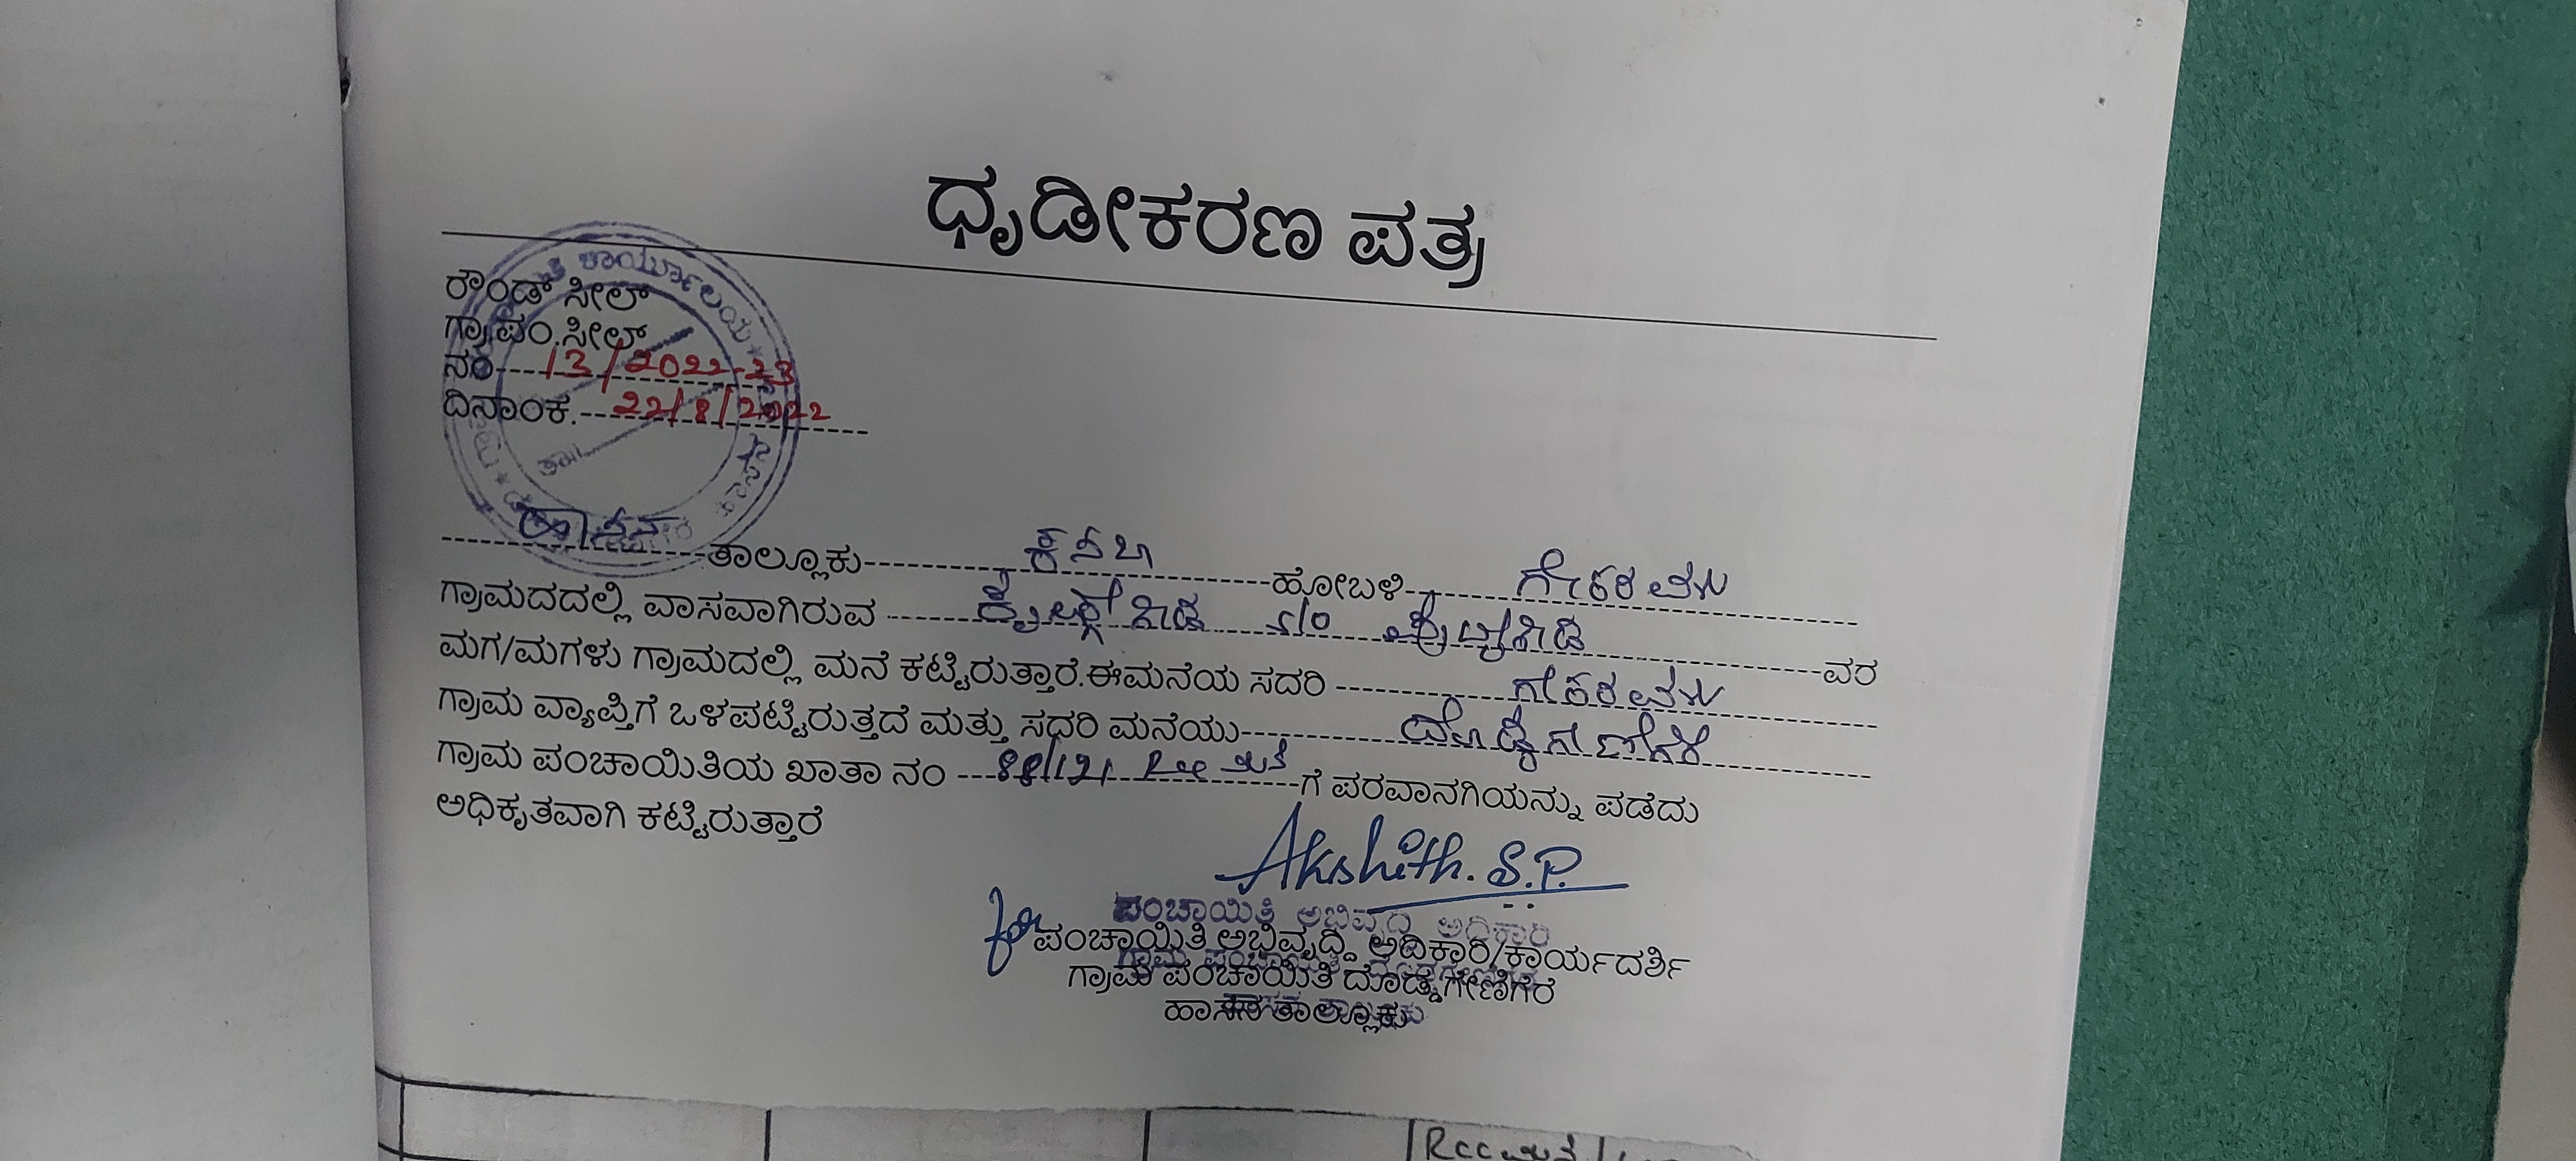 ಧೃಡೀಕರಣ ಪತ್ರ
ರೌಂಡ್ ಸೀಲ್
ಗ್ರಾ.ಪಂ.ಸೀಲ್
ನಂ 13/2022-23
ದಿನಾಂಕ. 22/8/2022
ಹಾಸನ ತಾಲ್ಲೂಕು ಕಸಬಾ ಹೋಬಳಿ
ಗ್ರಾಮದದಲ್ಲಿ ವಾಸವಾಗಿರುವ S/o ವರ
ಮಗ/ಮಗಳು ಗ್ರಾಮದಲ್ಲಿ ಮನೆ ಕಟ್ಟಿರುತ್ತಾರೆ.ಈಮನೆಯ ಸದರಿ
ಗ್ರಾಮ ವ್ಯಾಪ್ತಿಗೆ ಒಳಪಟ್ಟಿರುತ್ತದೆ ಮತ್ತು ಸಧರಿ ಮನೆಯು ದೊಡ್ಡಗೇಣಿಗೆರೆ
ಗ್ರಾಮ ಪಂಚಾಯಿತಿಯ ಖಾತಾ ನಂ Rcc ಮನೆ ಗೆ ಪರವಾನಗಿಯನ್ನು ಪಡೆದು
ಅಧಿಕೃತವಾಗಿ ಕಟ್ಟಿರುತ್ತಾರೆ
Akshith. S.P.
ಪಂಚಾಯಿತಿ ಅಭಿವೃದ್ಧಿ ಅಧಿಕಾರಿ
for ಪಂಚಾಯಿತಿ ಅಭಿವೃದ್ಧಿ ಅಧಿಕಾರಿ/ಕಾರ್ಯದರ್ಶಿ
ಗ್ರಾಮ ಪಂಚಾಯಿತಿ ದೊಡ್ಡಗೇಣಿಗೆರೆ
ಹಾಸನ ತಾಲ್ಲೂಕು
Rcc ಮನೆ